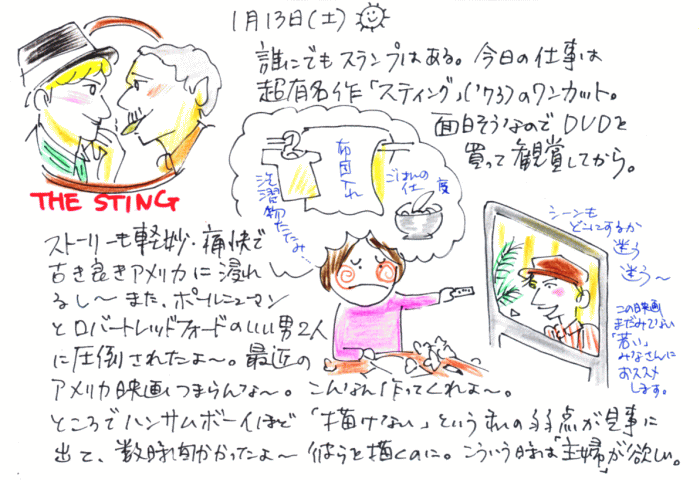 1月13日(土)
誰にでもスランプはある。今日の仕事は
超有名作「スティング」('73)のワンカット。
面白そうなのでDVDを
買って観賞してから。
THE STING
洗濯物たたみ…
布団入れ
ごはんの仕度
シーンも
どこにするか
迷う
迷う〜
この映画
まだみてない
「若い」
みなさんに
おススメ
します。
ストーリーも軽妙・痛快で
古き良きアメリカに浸れ
るし〜また、ポールニューマン
とロバートレッドフォードのいい男2人
に圧倒されたよ〜。最近の
アメリカ映画つまらんな〜。こんなん作ってくれよ〜。
ところでハンサムボーイほど「描けない」という私の弱点が見事に
出て、数時間かかったよ〜彼らを描くのに。こういう時は「主婦」が欲しい。